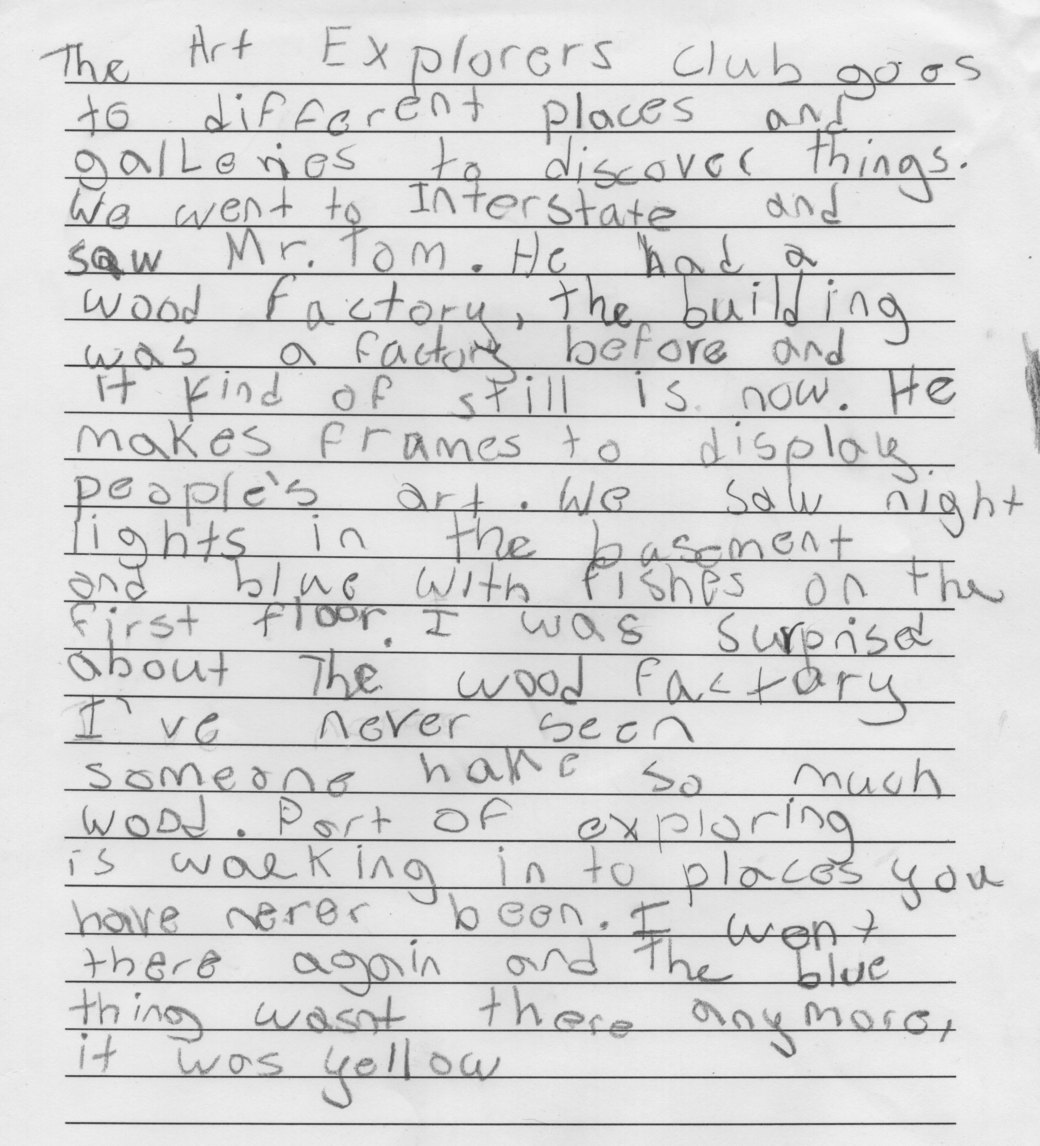 The Art Explorers Club goes
to different places and
galleries to discover things.
We went to Interstate and
saw Mr. Tom. He had a
wood factory, the building
was a factory before and
it kind of still is now. He
makes frames to display
people's art. We saw night
lights in the basement
and blue with fishes on the
first floor. I was surprised
about The wood factory
I've never seen
someone hake so much
wood. Part of exploring
is walking in to places you
have never been. I went
there again and The blue
thing wasnt there anymore,
it was yellow